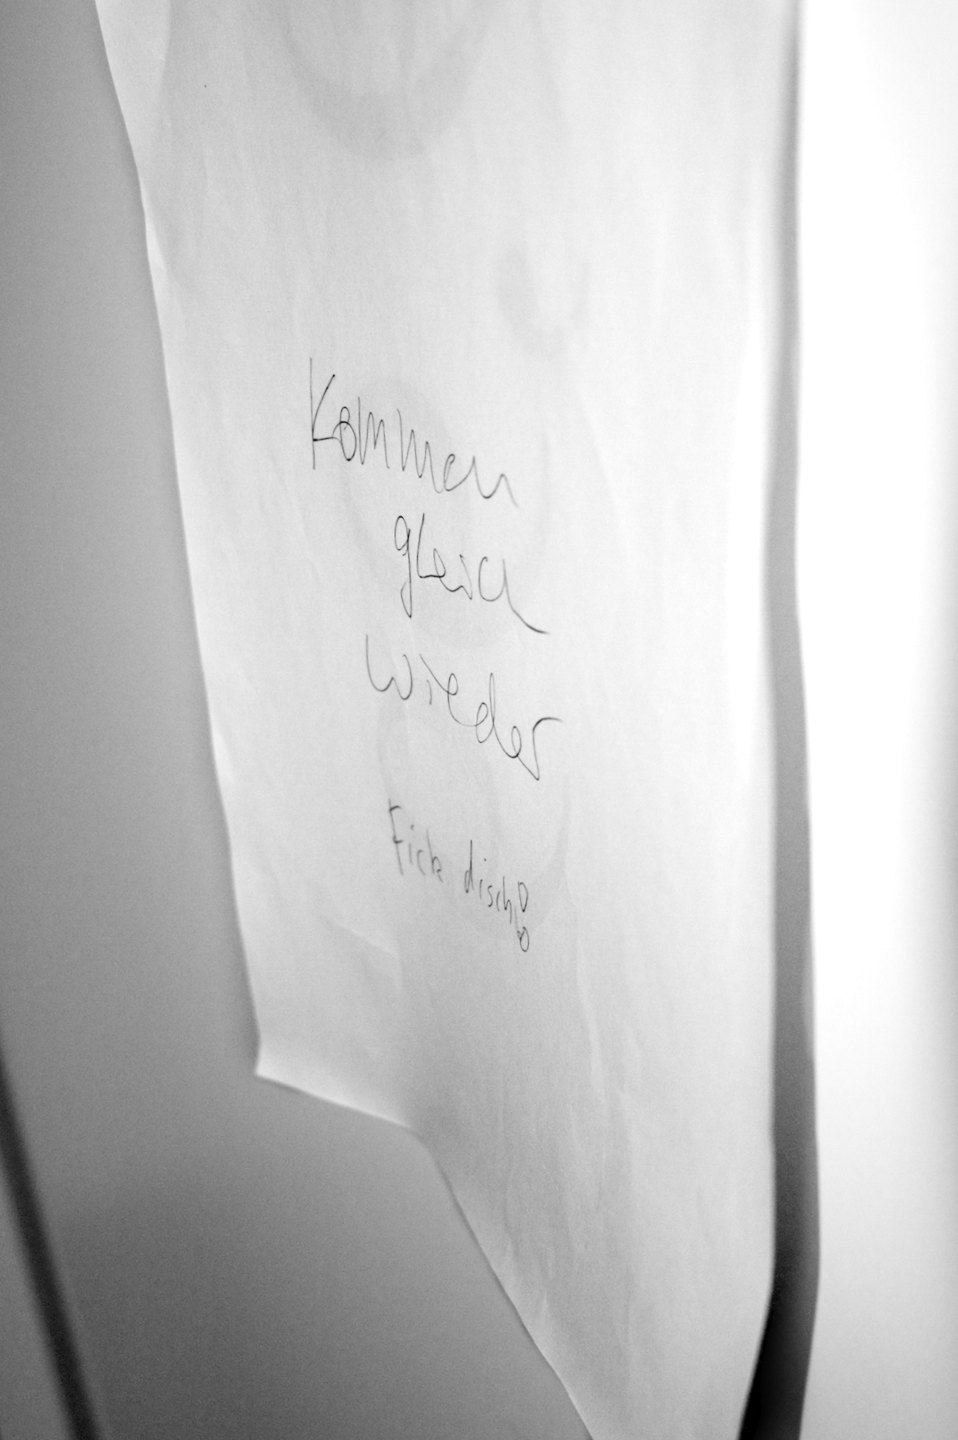 Kommen
gleich
wieder
Fick disch!